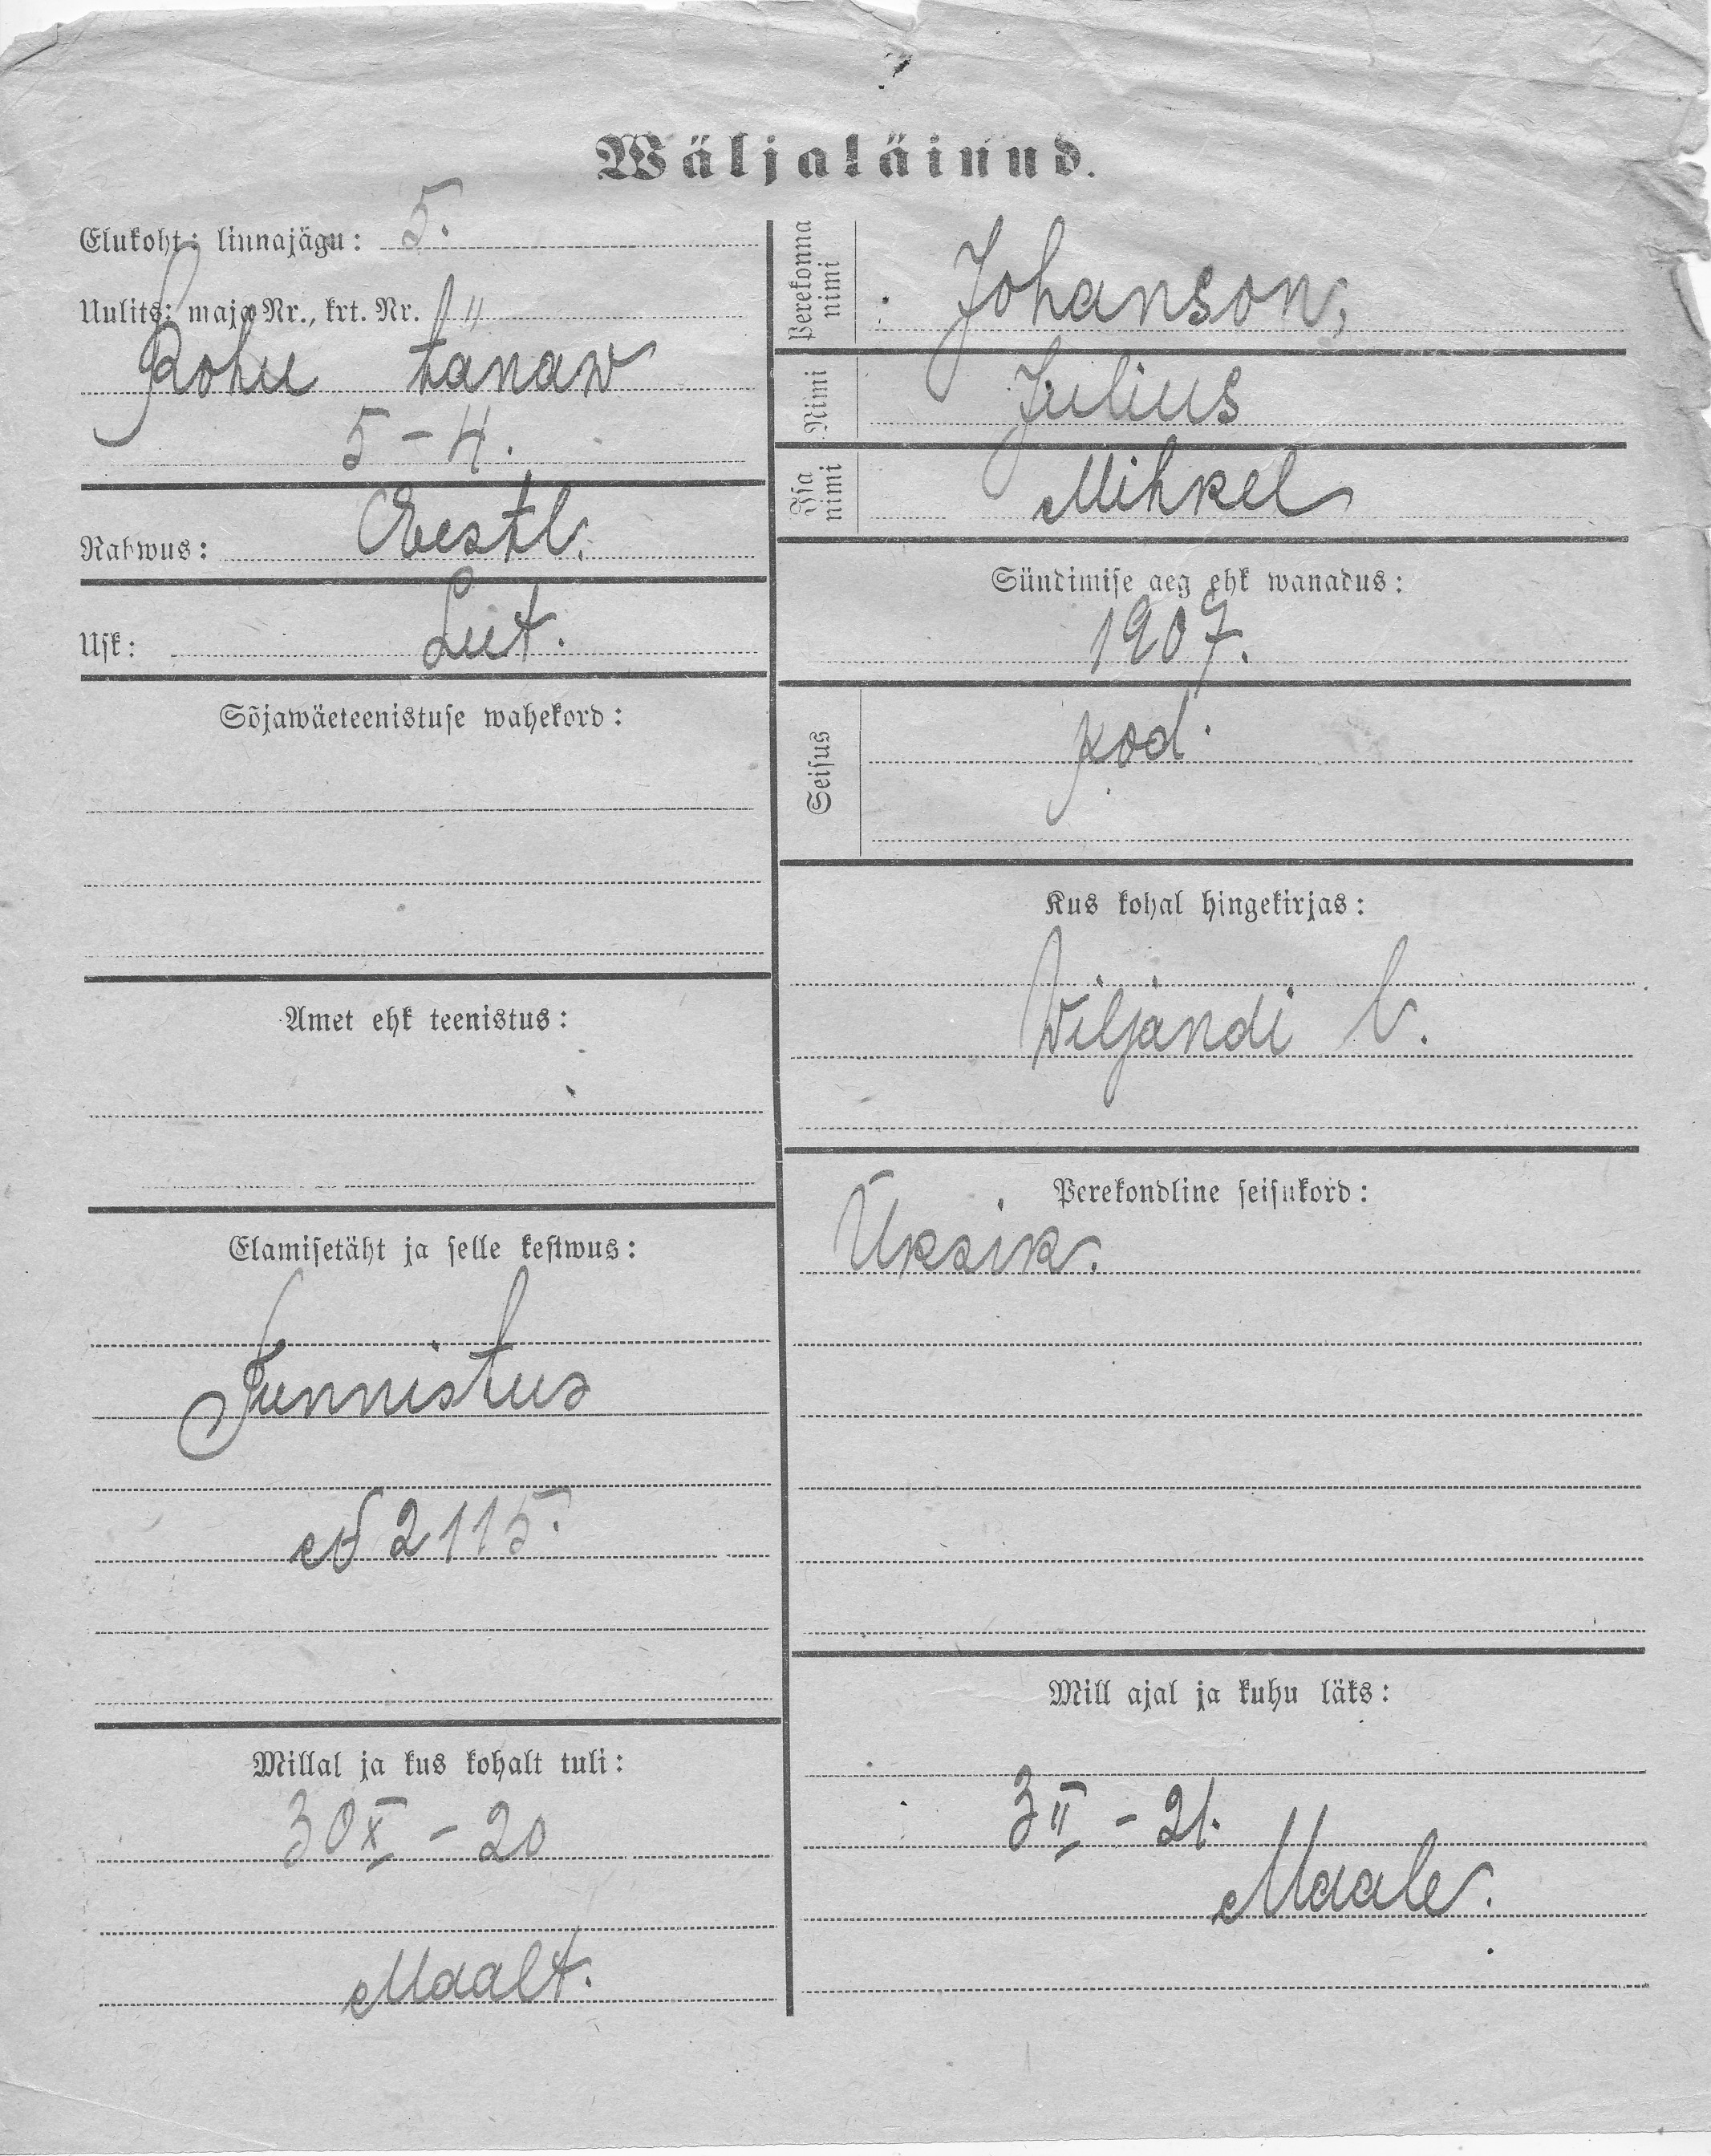 Wäljaläinud.
Elukoht: linnajägu: 5.
Uulits: maja Nr., krt. Nr.
Rohu tänaw
5 – 4.
Rahwus: Eestl.
Usk: Lut.
Sõjawäeteenistuse wahekord:
Amet ehk teenistus:
Elamisetäht ja selle kestwus:
Tunnistus
№ 2115.
Millal ja kus kohalt tuli:
30 X – 20
Maalt.
Perekonna nimi Johanson,
Nimi Julius
Isa nimi Mihkel
Sündimise aeg ehk wanadus:
1907.
Seisus kod.
Kus kohal hingekirjas:
Wiljandi l.
Perekondline seisukord:
Üksik.
Mill ajal ja kuhu läks:
3 II – 21.
Maale.